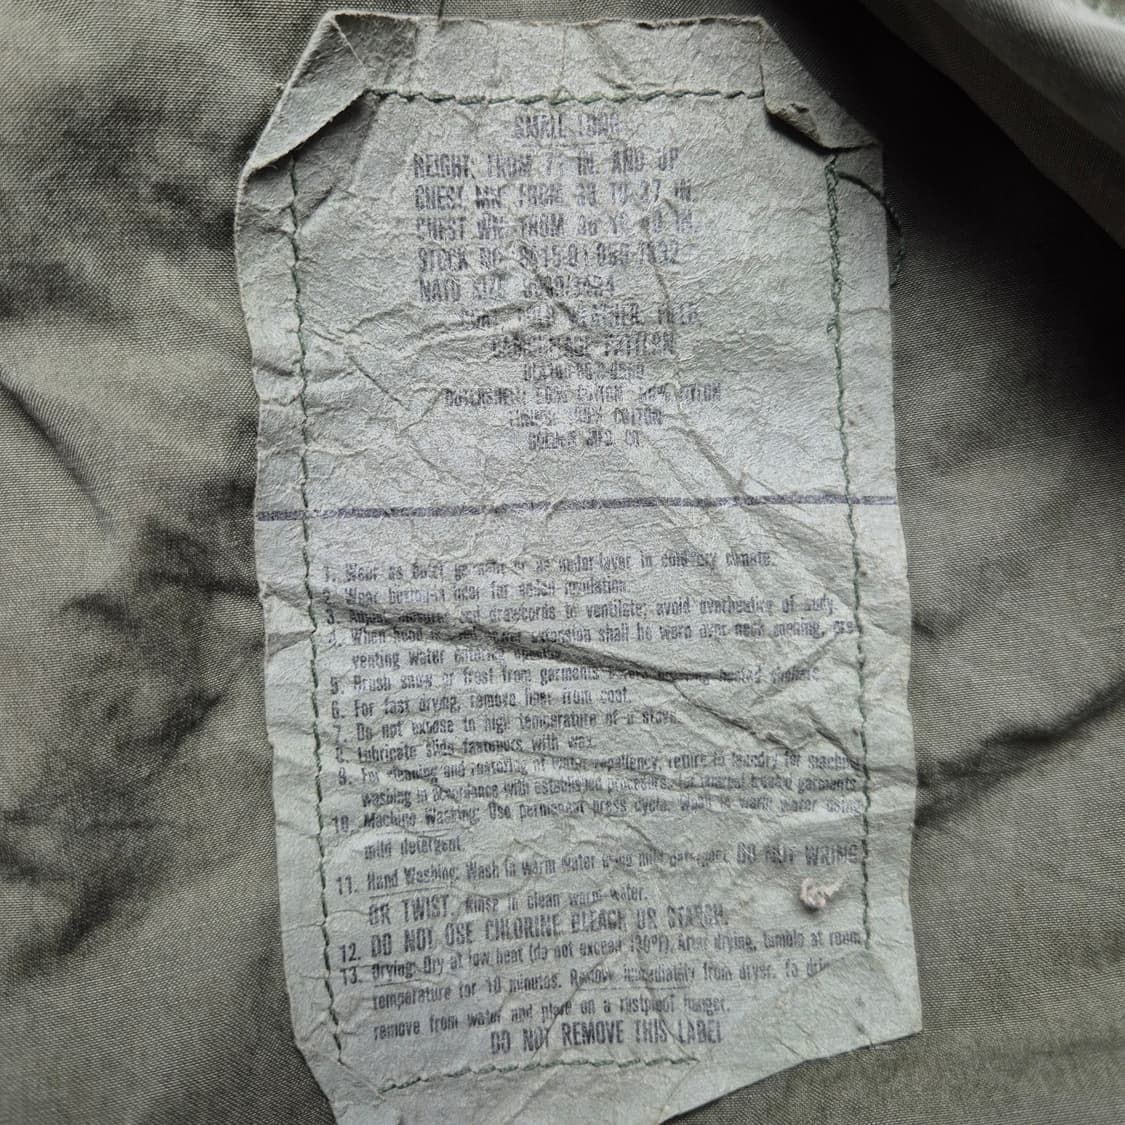 SMALL LONG
HEIGHT: FROM 71 IN. AND UP
CHEST MN FROM TO 37 IN.
CHEST WN FROM TO IN.
STOCK NO. 8415-01-
NATO SIZE
COAT, COLD WEATHER, FIELD
CAMOUFLAGE PATTERN
OUTERSHELL: 50% COTTON 50% NYLON
COTTON
GOLDEN MFG. CO.
1. Wear as outer garment or as under-layer in cold-dry climate.
2. Wear button-in liner for added insulation.
3. Adjust closures and drawcords to ventilate; avoid overheating of body.
4. When hood is extension shall be worn over neck opening, pre-
venting water entering
5. Brush snow or frost from garments before entering heated shelters.
6. For fast drying, remove liner from coat.
7. Do not expose to high temperature of a stove.
8. Lubricate slide fasteners with wax.
9. For cleaning and restoring of water repellency, return to laundry for machine
washing in accordance with established procedures for treated garments.
10. Machine Washing: Use permanent press cycle. Wash in warm water using
mild detergent.
11. Hand Washing: Wash in warm water using mild detergent. DO NOT WRING
OR TWIST. Rinse in clean warm water.
12. DO NOT USE CHLORINE BLEACH OR STARCH.
13. Drying: Dry at low heat (do not exceed 130°F). After drying, tumble at room
temperature for 10 minutes. Remove immediately from dryer. To drip
remove from water and place on a rustproof hanger.
DO NOT REMOVE THIS LABEL